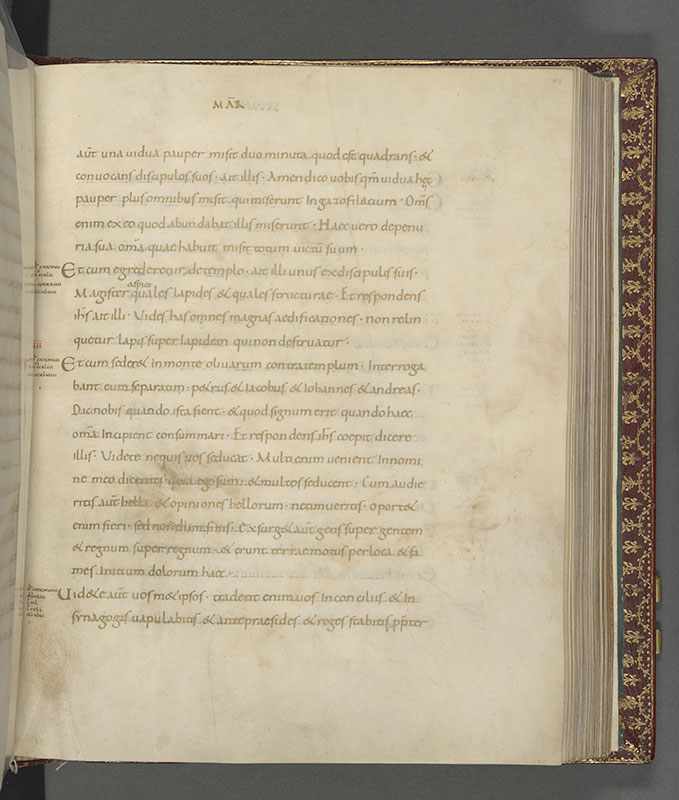 MAR̄
aut̄ una vidua pauper misit duo minuta quod est quadrans · &
convocans discipulos suos · ait illis · Amen dico vobis qm̄ vidua hęc
pauper plus omnibus misit qui miserunt In gazofilacium · Om̄s
enim ex eo quod abundabat illis miserunt · Haec vero de penu
ria sua om̄a quae habuit misit totum victū suum ·
Et cum egrederetur de templo · ait illi unus ex discipulis suis ·
aspice
Magister quales lapides & quales structurae · Et respondens
ih̄s ait illi · Vides has omnes magnas aedificationes · non relin
quetur lapis super lapidem qui non destruatur ·
Et cum seder& In monte olivarum contra templum · Interroga
bant eum separatim · p&rus & Iacobus & Iohannes & andreas ·
Dic nobis quando ista fient · & quod signum erit quando haec
om̄a Incipient consummari · Et respondens ih̄s coepit dicere
illis · Videte ne quis vos seducat · Multi enim venient In nomi
ne meo dicentes quia ego sum · & multos seducent · Cum audie
ritis aut̄ bella & opiniones bellorum · ne timueritis · oport&
enim fieri · sed nondum finis · Exsurg& aut̄ gens super gentem
& regnum super regnum · & erunt terrae motus per loca & fa
mes · Initium dolorum haec ·
Uid&e aut̄ vosm&ipsos · tradent enim vos In conciliis & In
synagogis vapulabitis & ante praesides & reges stabitis pp̄ter